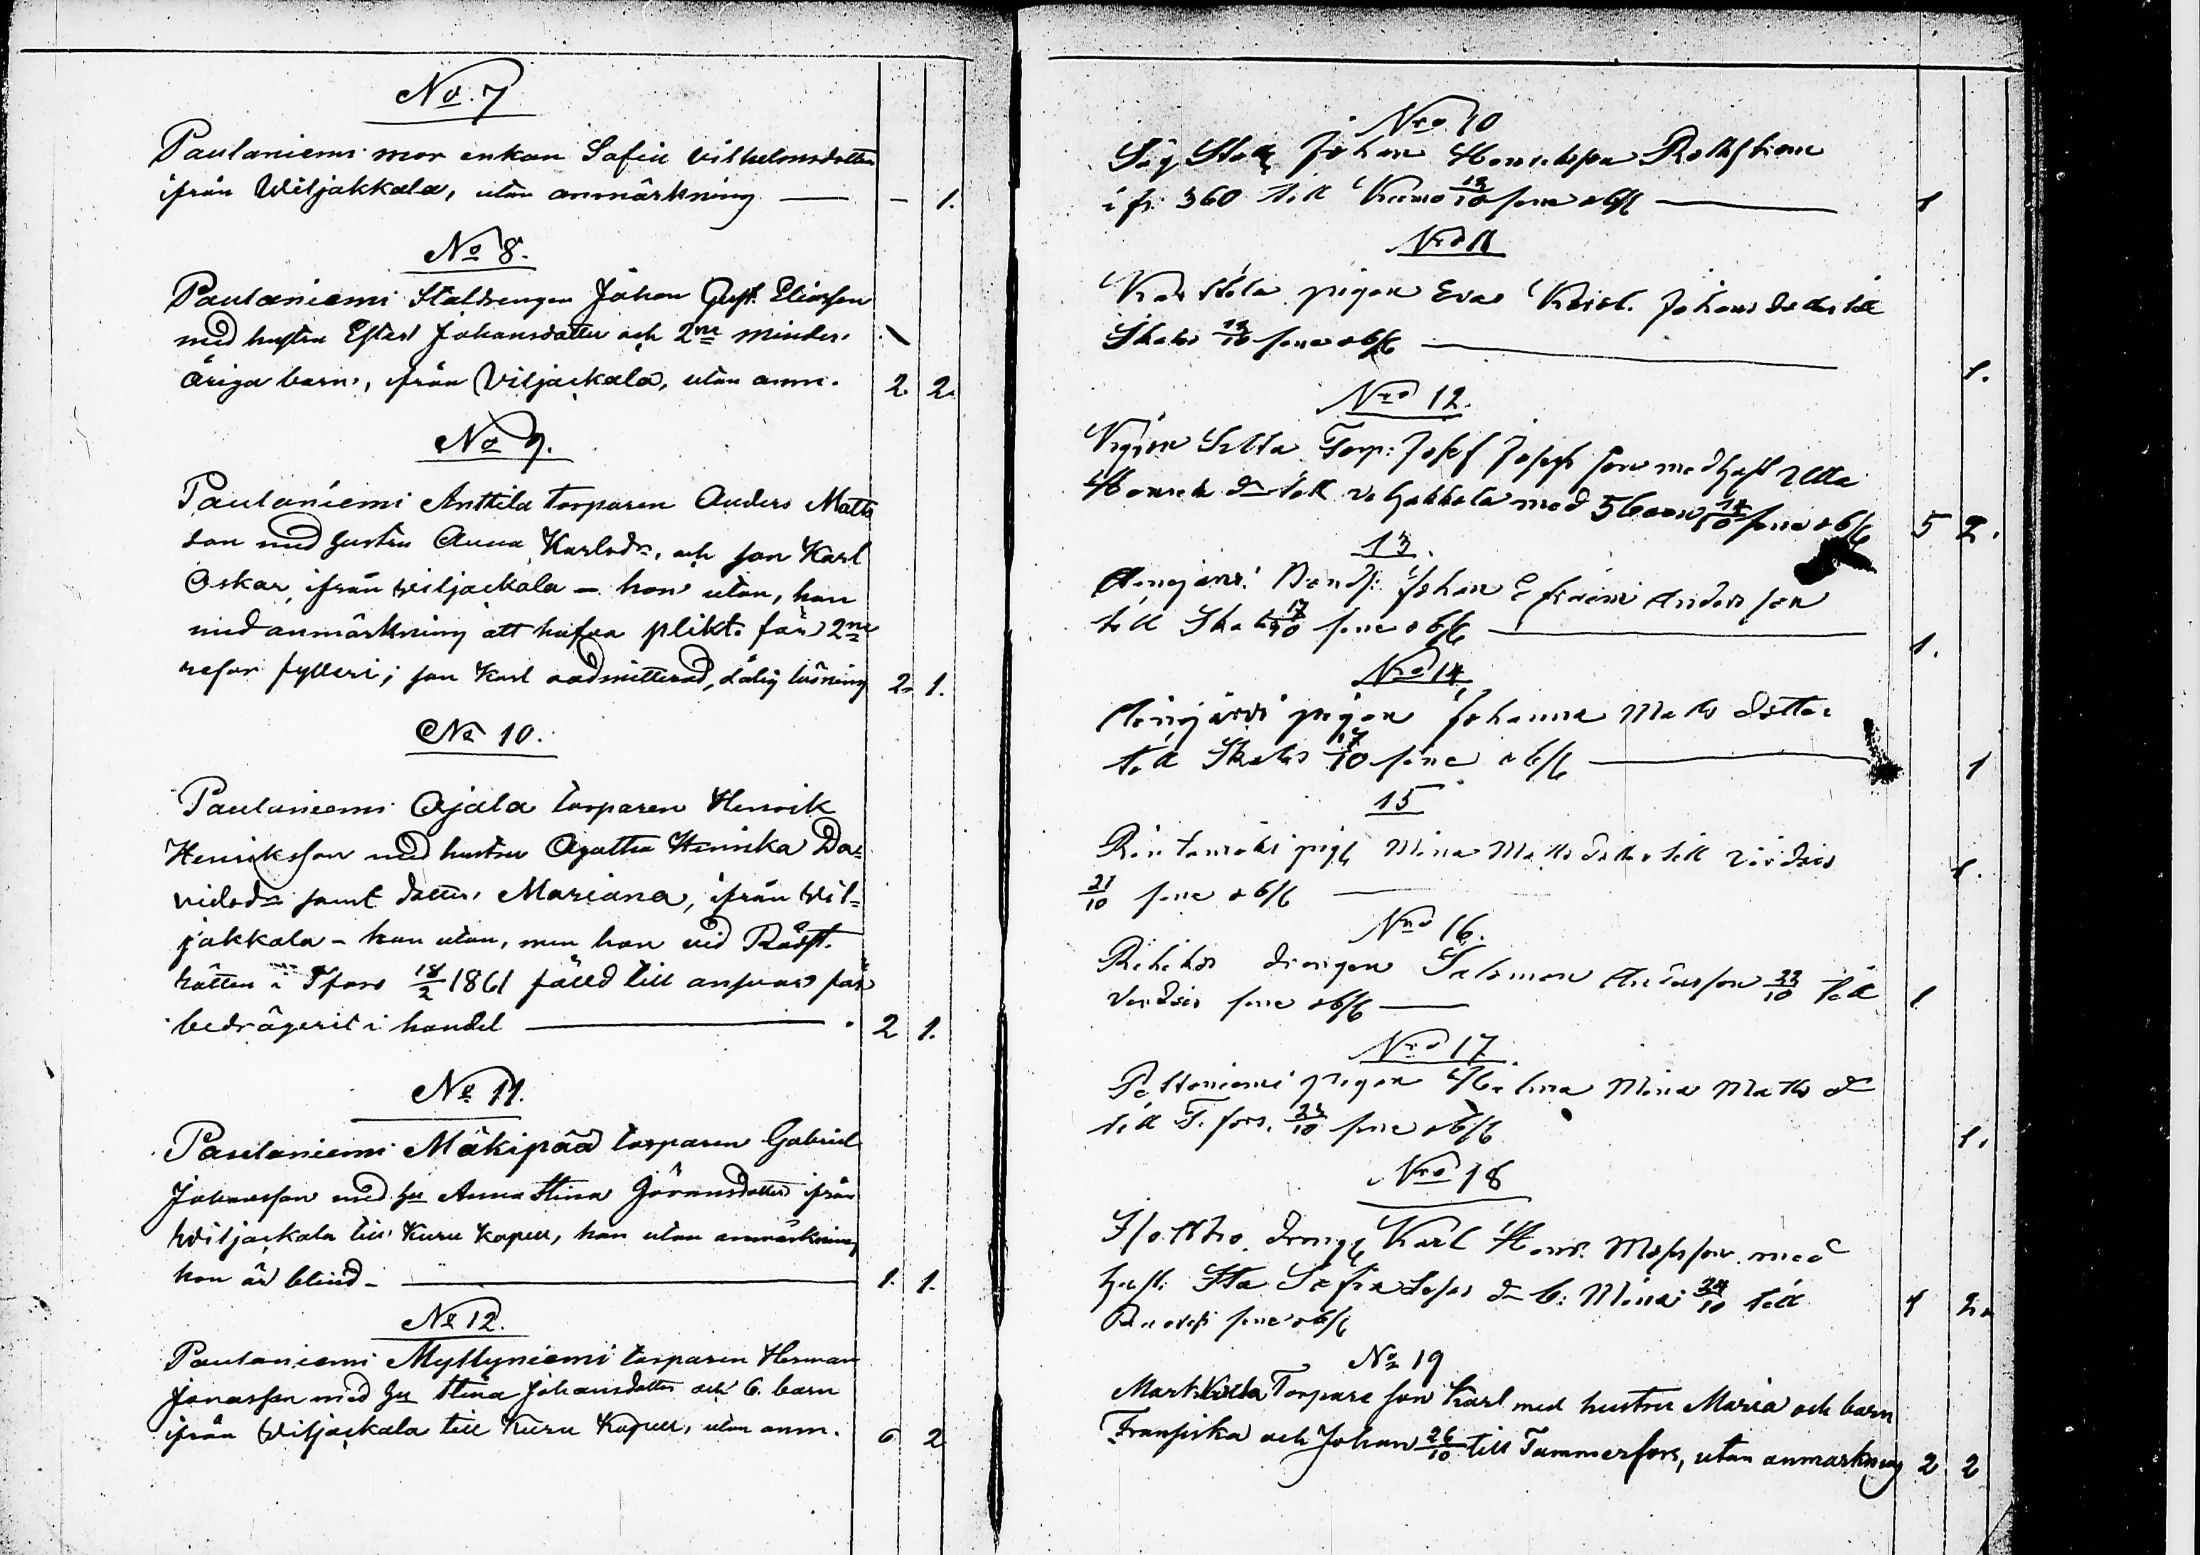 No. 7
Paulaniemi mor enkan Sofia Vilhelmsdotter
ifrån Wiljakkala, utan anmärkning — - 1.
No 8.
Paulaniemi Staldrengen Johan Gust. Eliasson
med hustru Ester Johansdotter och 2ne minder-
åriga barn, ifrån Viljackala, utan anm. 2. 2.
No 9.
Paulaniemi Anttila torparen Anders Matts
son med hustru Anna Karlsdr, och son Karl
Oskar, ifrån Wiljackala — hon utan, han
med anmärkning att hafva plikt. för 2ne
resor fylleri; son Karl oadmitterad, dålig läsning 2. 1.
No 10.
Paulaniemi Ojala torparen Henrik
Henriksson med hustru Agatha Henrika Da-
vidsdr samt dotter Mariana, ifrån Wil-
jakkala - hon utan, men han vid Rådst.
rätten i Tfors 18/2 1861 fälld till ansvar för
bedrägeri i handel — 2 1.
No 11.
Paulaniemi Mäkipää torparen Gabriel
Johansson med hu Anna Stina Göransdotter ifrån
Wiljackala till Kuru Kapell, han utan anmärkning
hon är blind — 1. 1.
No 12.
Paulaniemi Myllyniemi torparen Herman
Jonasson med hu Stina Johansdotter och 6. barn
ifrån Wiljackala till Kuru Kapell, utan anm. 6 2
Nro 10
Johan
i fr. 360 till 13/10 sine obst — 1
Nro 11
pigan Eva Krist. Johansdotter till
13/10 sine obst — 1.
Nro 12.
Torp: Josef Josefsson med hust Ulla
Henrik dr till med 5 barn 14/10 sine obst 5 2.
13.
Johan Efraim Andersson
till 17/10 sine obst — 1.
Nro 14
pigan Johanna Matsdotter
till 17/10 sine obst — 1
15
Mina Mattsdotter till Virdois
21/10 sine obst — 1.
Nro 16.
drengen Salomon Andersson 23/10 till
Virdois sine obst — 1
Nro 17
pigan Mina Matts dr
till T. fors. 23/10 sine obst 1.
Nro 18
dreng Karl Henr. med
hust: Sta Sofia dr b: Mina 24/10 till
Ruovesi sine obst 1 2.
No 19
Torpare son Karl med hustru Maria och barn
Fransiska och Johan 26/10 till Tammerfors, utan anmarkning 2 2